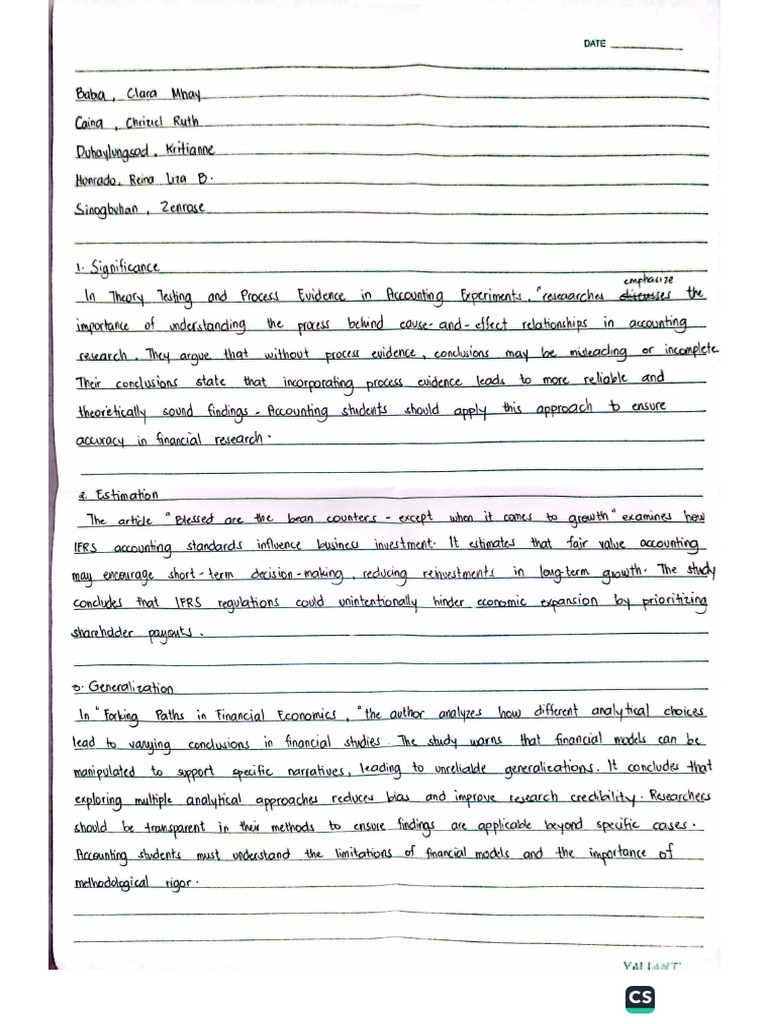 DATE
Baba, Clara Mhay
Caina, Chriziel Ruth
Duhaylungsod, Kritianne
Honrado, Reina Liza B.
Sinogbuhan, Zenrose
1. Significance
emphasize
In Theory Testing and Process Evidence in Accounting Experiments, "reseaarches discusses the
importance of understanding the process behind cause-and-effect relationships in accounting
research. They argue that without process evidence, conclusions may be misleading or incomplete
Their conclusions state that incorporating process evidence leads to more reliable and
theoretically sound findings. Accounting students should apply this approach to ensure
accuracy in financial research.
2. Estimation
The article "Blessed are the bean counters - except when it comes to growth" examines how
IFRS accounting standards influence business investment. It estimates that fair value accounting
may encourage short-term decision-making, reducing reinvestments in long-term growth. The study
concludes that IFRS regulations could unintentionally hinder economic expansion by prioritizing
shareholder payouts.
3. Generalization
In "Forking Paths in Financial Economics, "the author analyzes how different analytical choices
lead to varying conclusions in financial studies. The study warns that financial models can be
manipulated to support specific narratives, leading to unreliable generalizations. It concludes that
exploring multiple analytical approaches reduces bias and improve research credibility. Researchers
should be transparent in their methods to ensure findings are applicable beyond specific cases.
Accounting students must understand the limitations of financial models and the importance of
methodological rigor.
VALIANT
CS